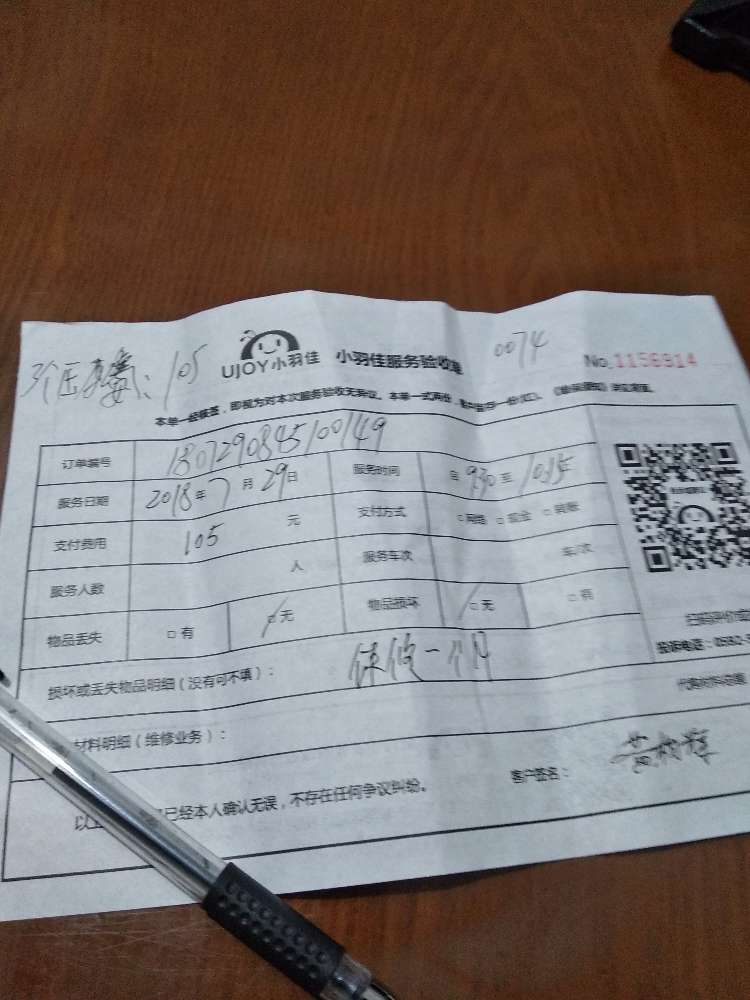 0074
UJOY小羽佳 小羽佳服务验收单 No.1156914
105
本单一经核签，即视为对本次服务验收无异议。本单一式两份，客户留存一份
订单编号 1807290845100149
服务日期 2018年7月29日 服务时间 自930至1015
支付费用 105元 支付方式 □网络 □现金 □转账
服务人数 人 服务车次 车/次
物品丢失 □有 □无 物品损坏 □无 □有
扫码评价
投诉电话：0592-
损坏或丢失物品明细（没有可不填）： 保修一个月
材料明细（维修业务）：
以上 已经本人确认无误，不存在任何争议纠纷。 客户签名：